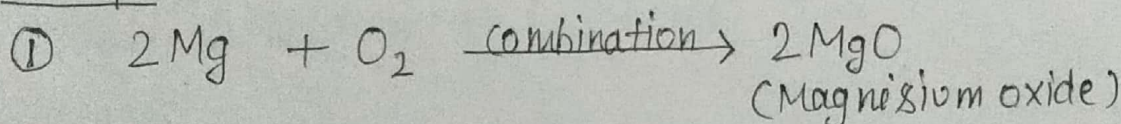 ① 2Mg + O₂ combination→ 2MgO
(Magnisium oxide)